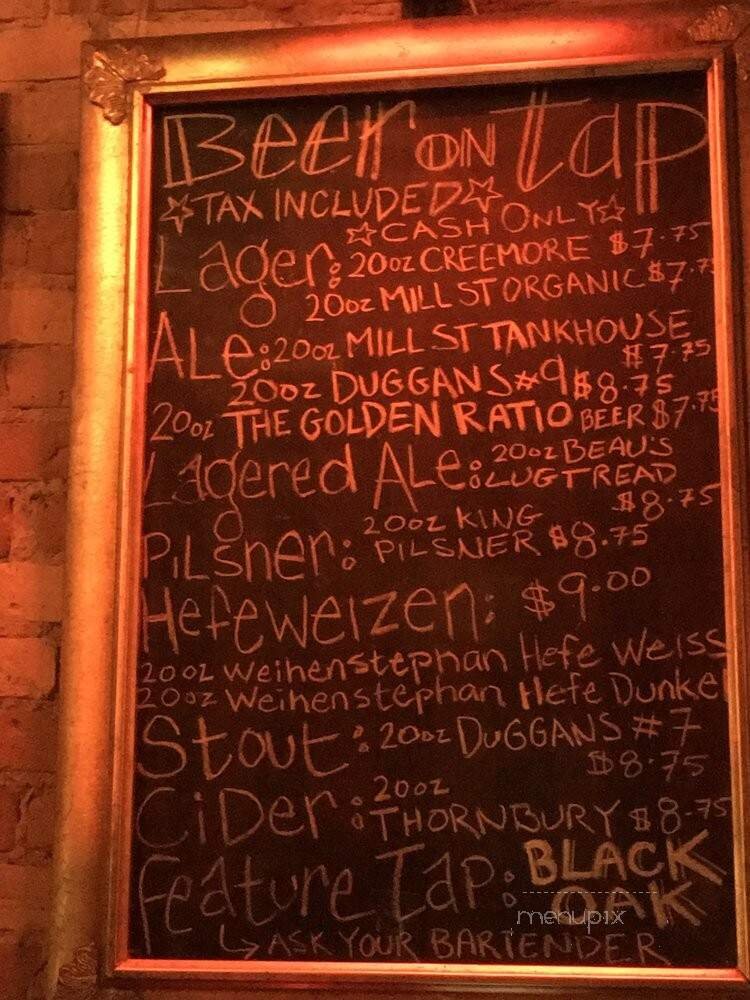 Beer ON Tap
☆TAX INCLUDED☆
☆CASH ONLY☆
Lager: 20oz CREEMORE $7.75
20oz MILL ST ORGANIC $7.75
ALe: 20oz MILL ST TANKHOUSE
$7.75
20oz DUGGANS #9 $8.75
20oz THE GOLDEN RATIO BEER $7.75
Lagered ALe: 20oz BEAU'S
LUGTREAD
$8.75
PiLsner: 20oz KING
PILSNER $8.75
Hefeweizen: $9.00
20oz Weihenstephan Hefe Weiss
20oz Weihenstephan Hefe Dunkel
Stout: 20oz DUGGANS #7
$8.75
CiDer: 20oz
THORNBURY $8.75
Feature Tap: BLACK
OAK
↳ ASK YOUR BARTENDER
menupix